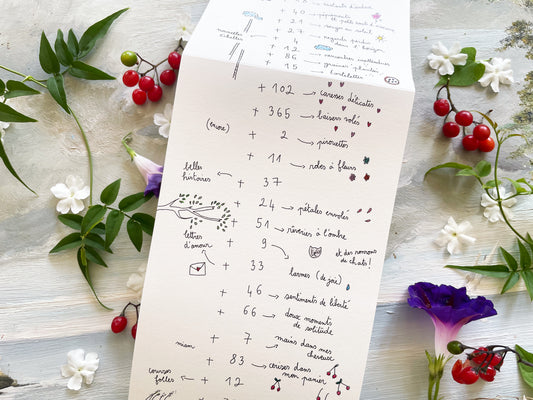 + 40
+ 21
+ 27
nouvelles
échelles
+ 12
+ 86 → rencontres inattendues
+ 15
+ 102 → caresses délicates
+ 365 → baisers volés
(encore) + 2 → pirouettes
+ 11 → robes à fleurs
belles
histoires ← + 37
+ 24 → pétales envolés
+ 51 → rêveries à l'ombre
lettres
d'amour ← + 9 → et des ronrons
de chats !
+ 33 → larmes (de joie)
+ 46 → sentiments de liberté
+ 66 → doux moments
de solitude
+ 7 → mains dans mes
cheveux
miam + 83 → cerises dans
mon panier
courses
folles ← + 12